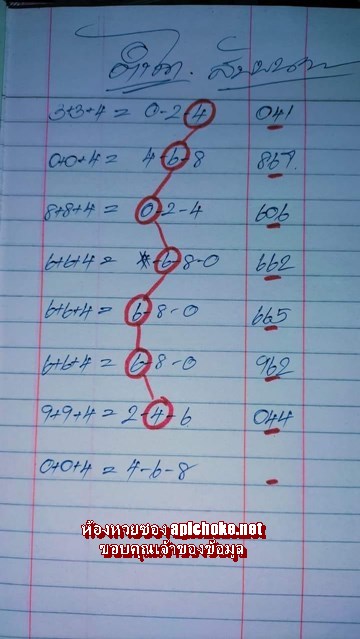 3+3+4 = 0-2-4 041
0+0+4 = 4-6-8 867.
8+8+4 = 0-2-4 606
6+6+4 = -6-8-0 662
6+6+4 = 6-8-0 665
6+6+4 = 6-8-0 962
9+9+4 = 2-4-6 044
0+0+4 = 4-6-8 -
ห้องหวยซอง apichoke.net
ขอบคุณเจ้าของข้อมูล